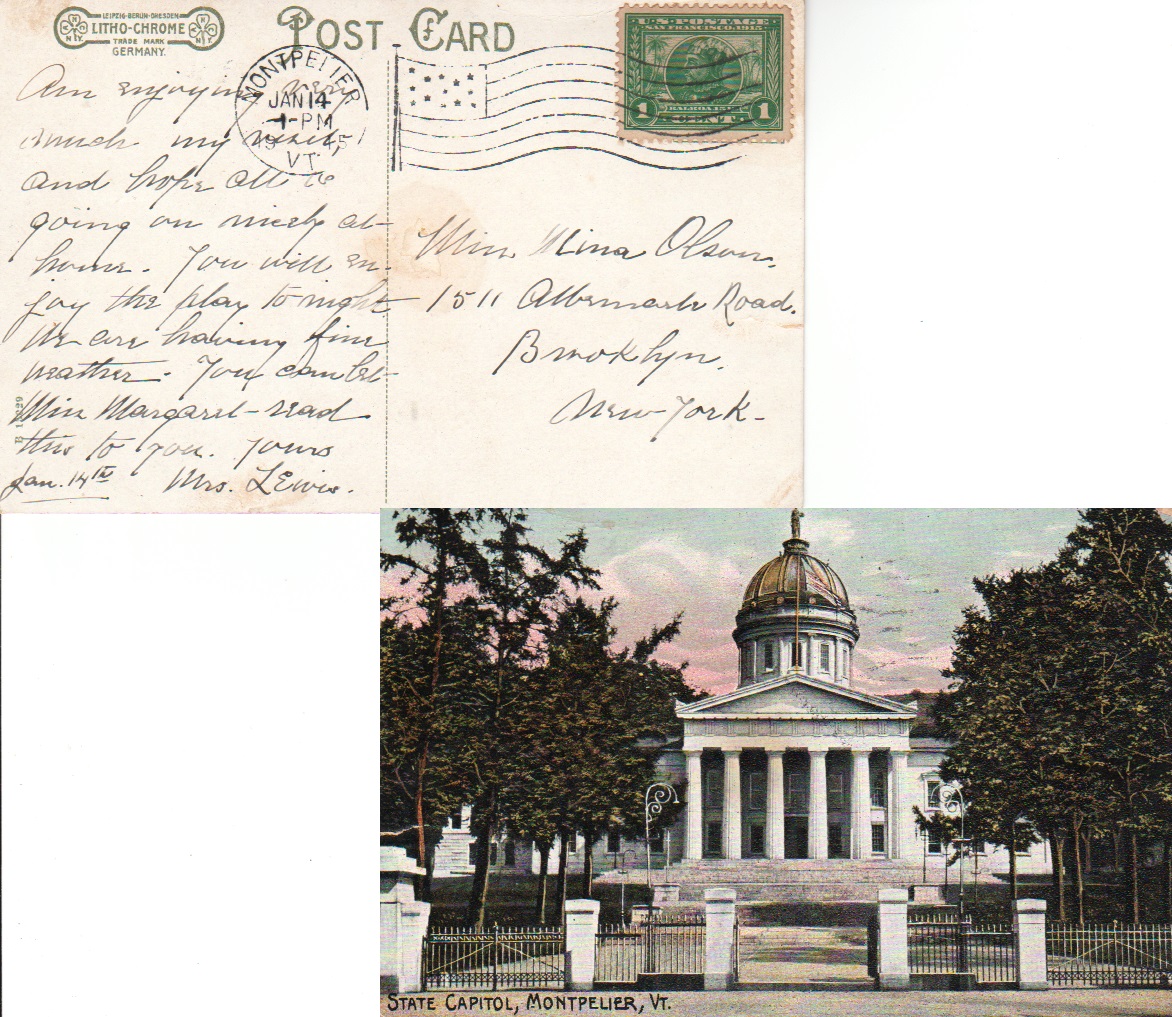 LEIPZIG-BERLIN-DRESDEN
LITHO-CHROME
TRADE MARK
GERMANY.
POST CARD
U.S. POSTAGE
SAN FRANCISCO 1915
BALBOA 1513
1 CENT 1
MONTPELIER
JAN 14
1-PM
VT.
Am enjoying very
much my visit,
and hope all is
going on nicely at
home. You will en-
joy the play to night
We are having fine
weather. You can let
Miss Margaret read
this to you. Yours
Jan. 14th Mrs. Lewis.
Miss Mina Olson.
1511 Albemarle Road.
Brooklyn.
New York-
STATE CAPITOL, MONTPELIER, VT.